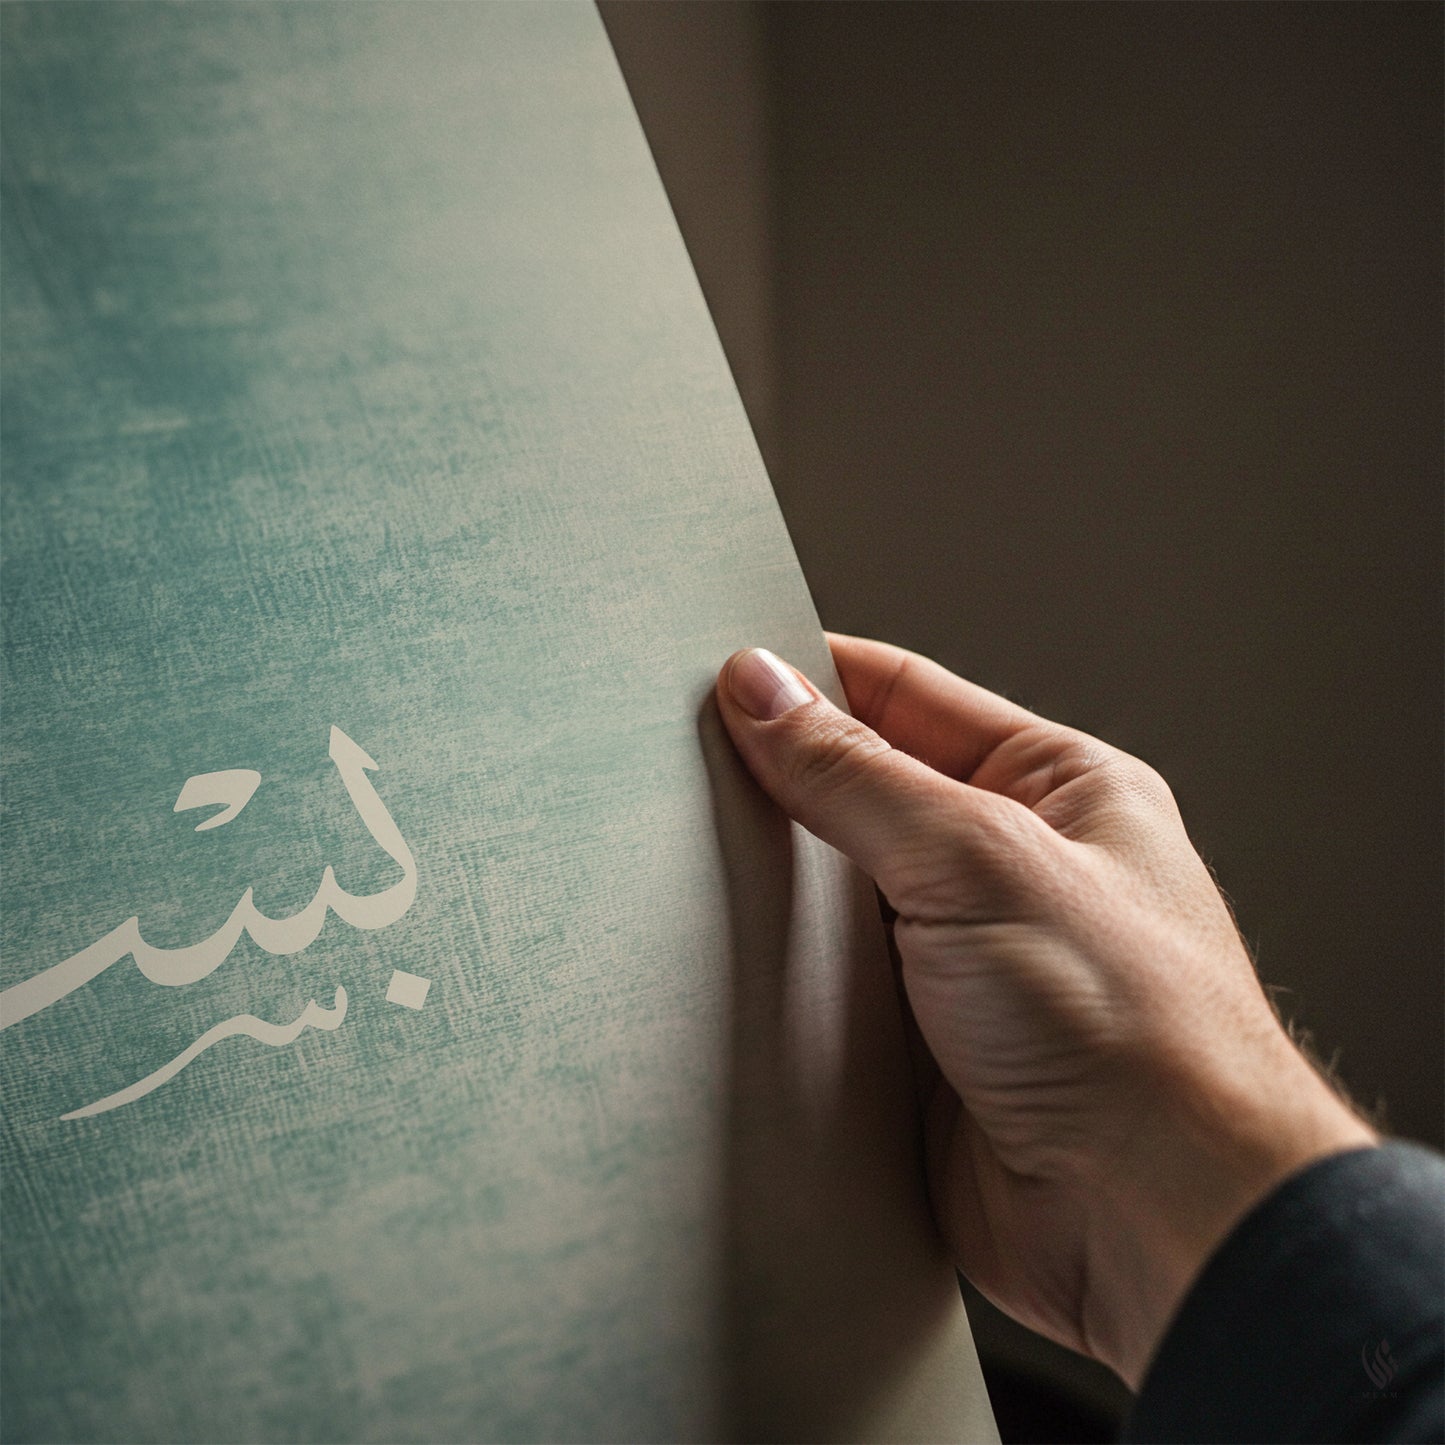 بسْـ